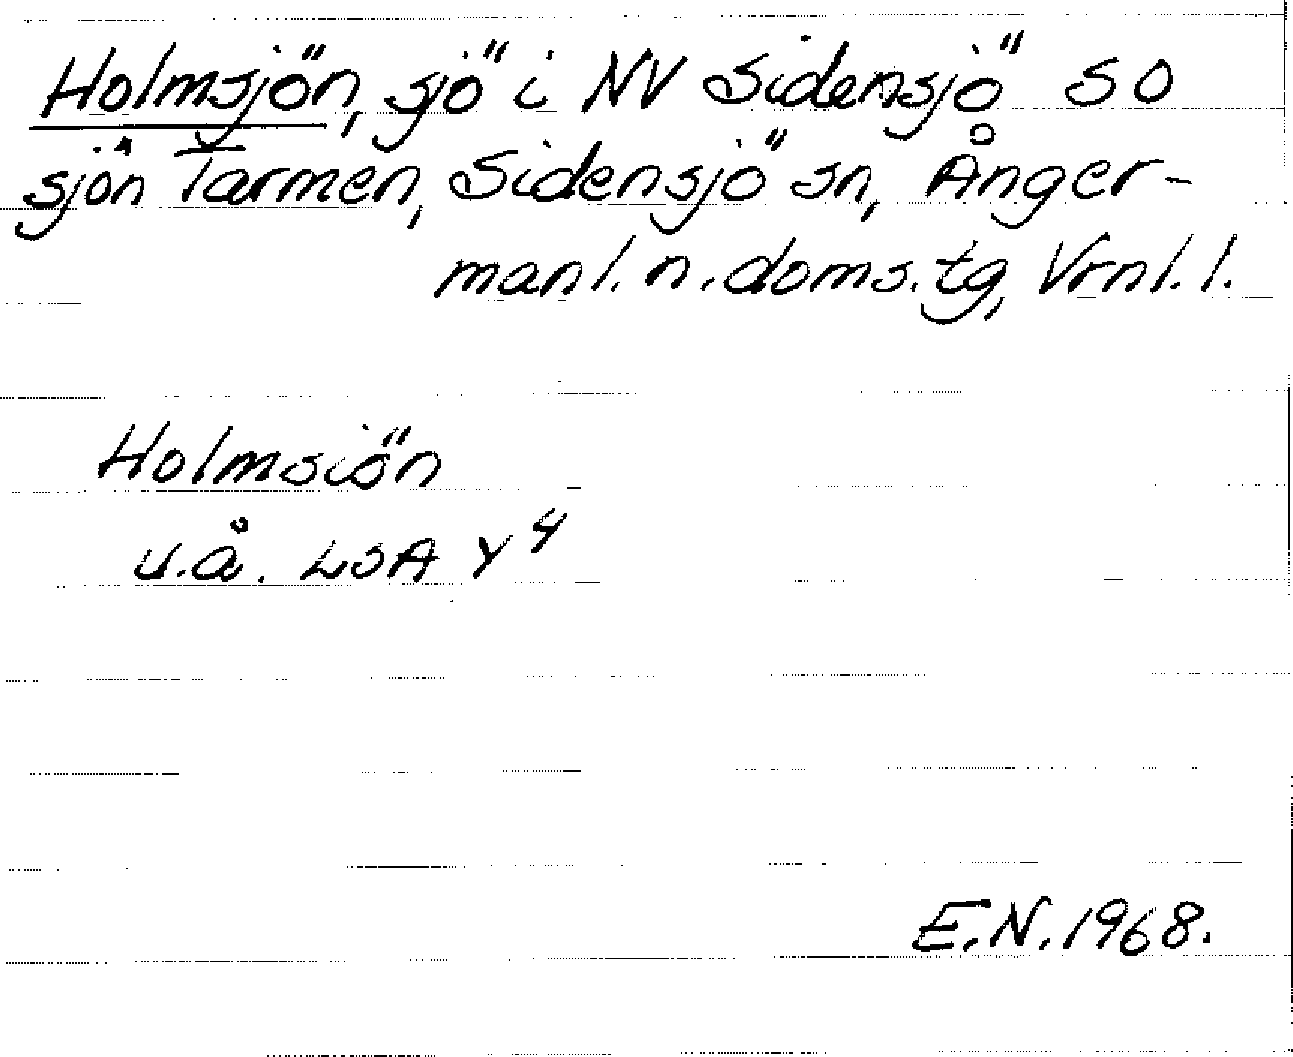 Holmsjön, sjö i NV Sidensjö SO
sjön Tarmen, Sidensjö sn, Ånger-
manl. n. doms. tg, Vrnl. l.
Holmsiön
u.å. LSA Y 4
E.N. 1968.